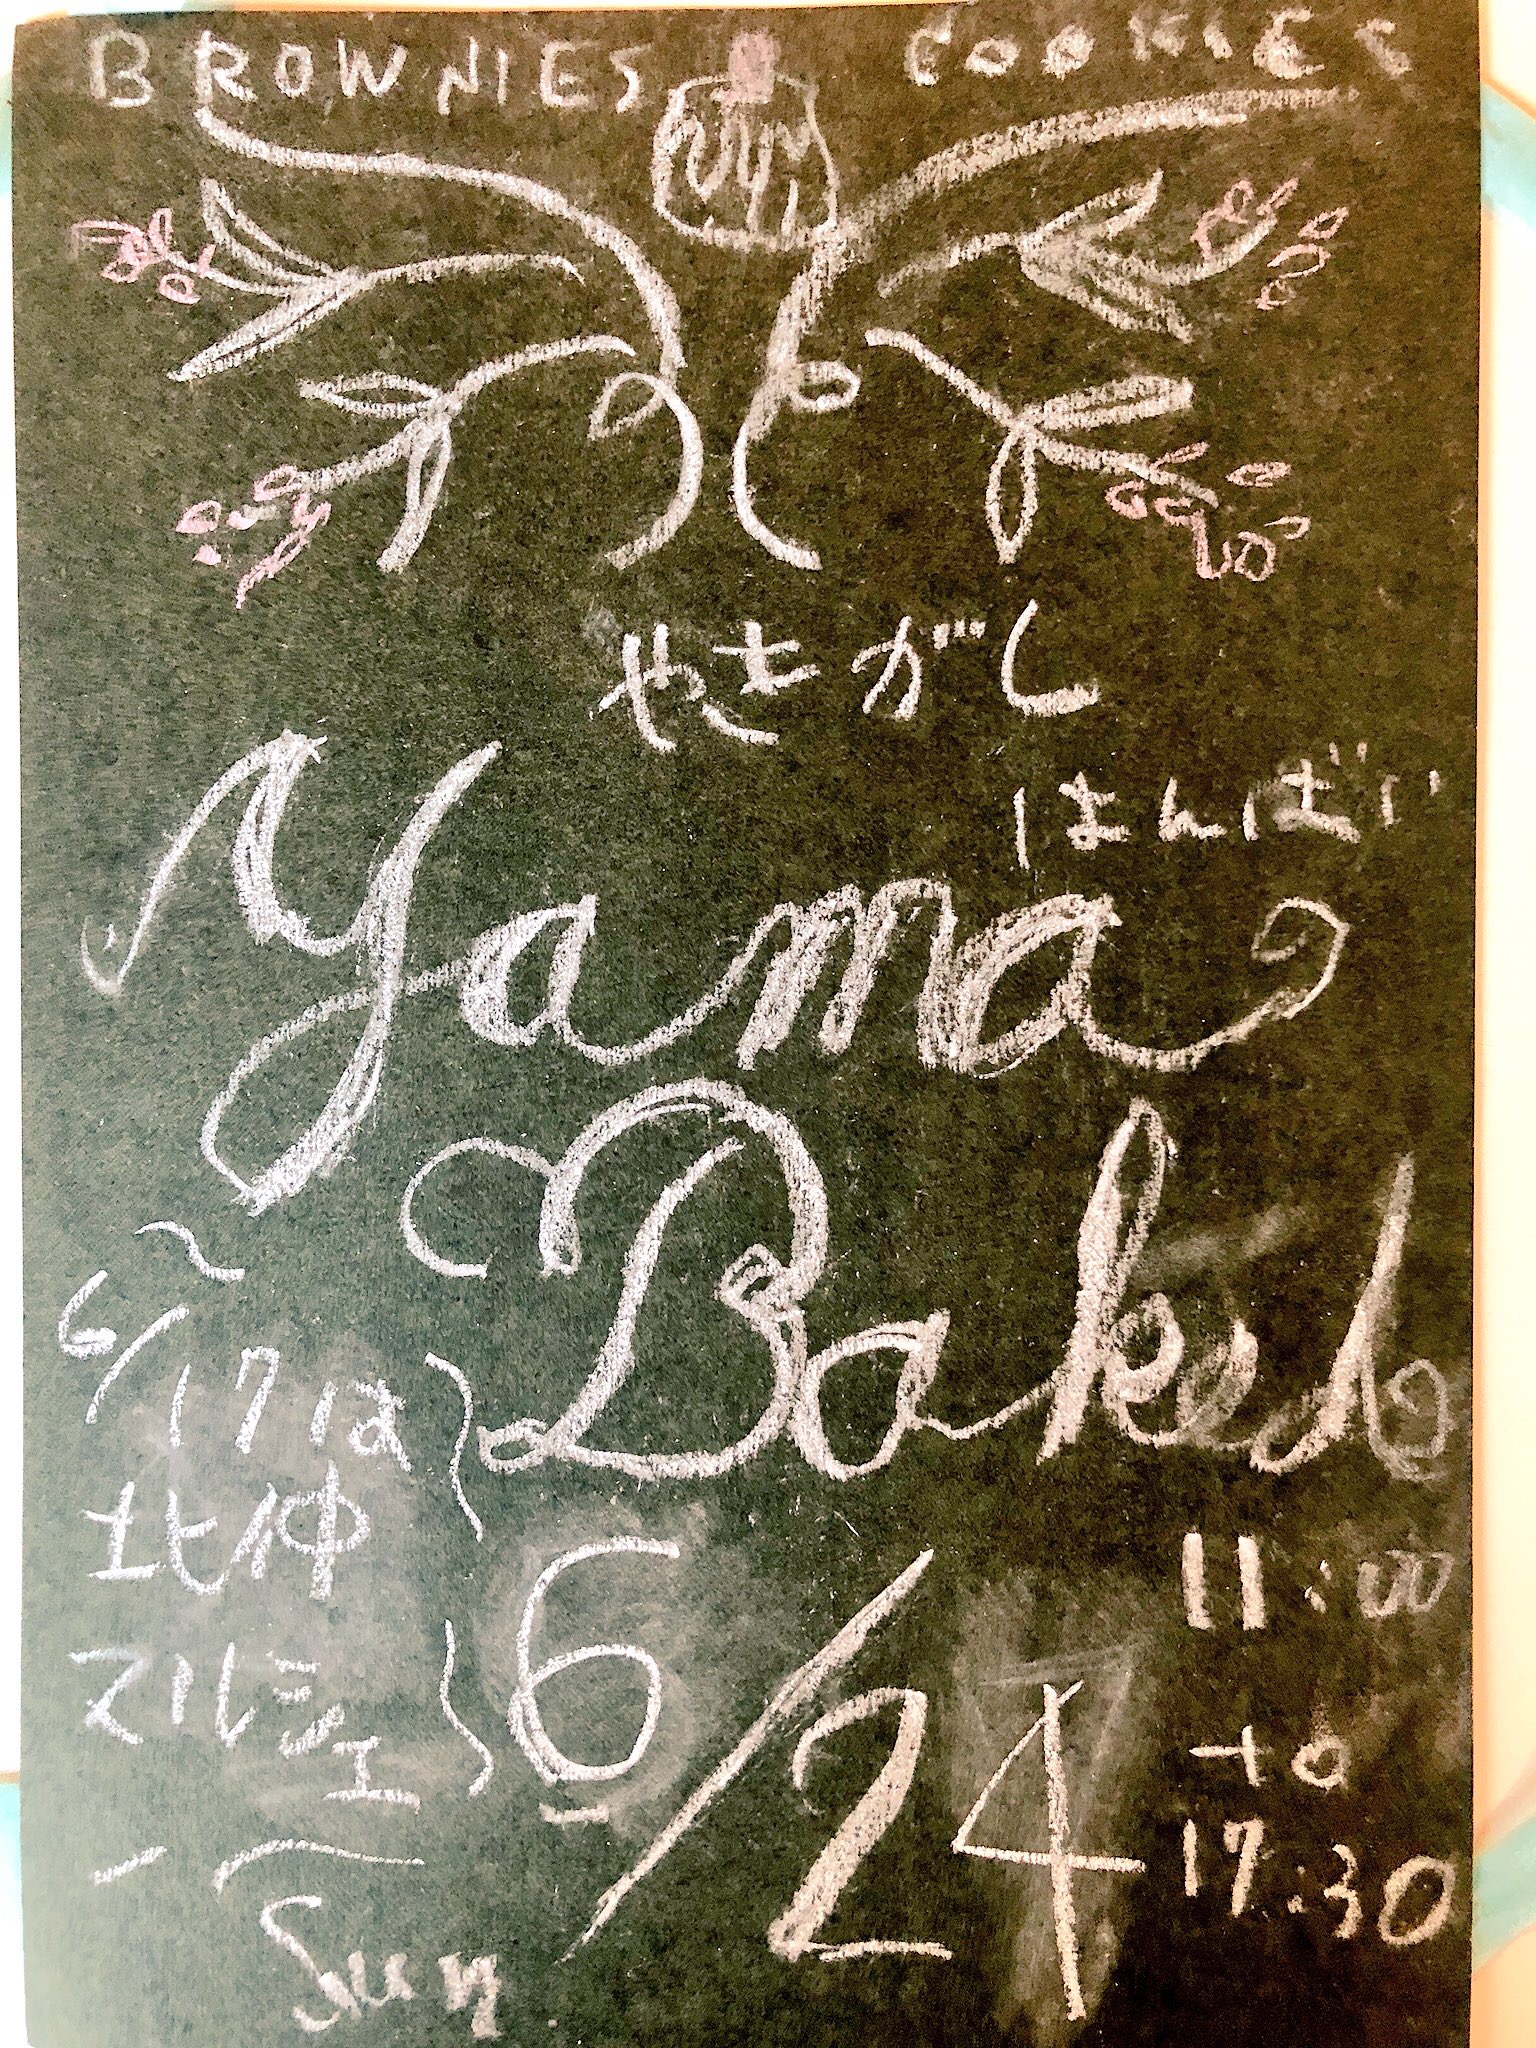 BROWNIES COOKIES
やきがし
はんばい
Yama
Baked
6/17は
北仲
マルシェ
6/24
Sun
11:00
to
17:30